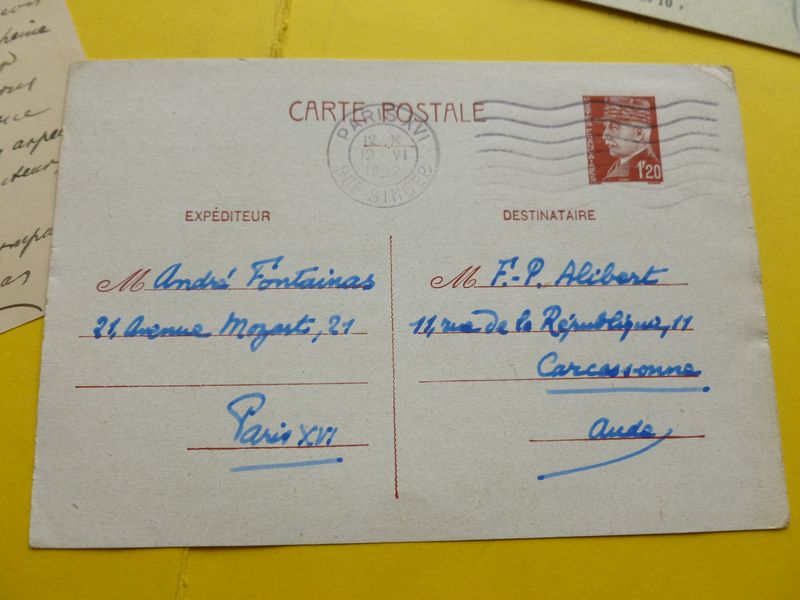 CARTE POSTALE
PARIS XVI
12 VI
RUE SINGER
1F20
EXPÉDITEUR
M André Fontainas
21, Avenue Mozart, 21
Paris XVI
DESTINATAIRE
M. F.-P. Alibert
11, rue de la République, 11
Carcassonne
Aude